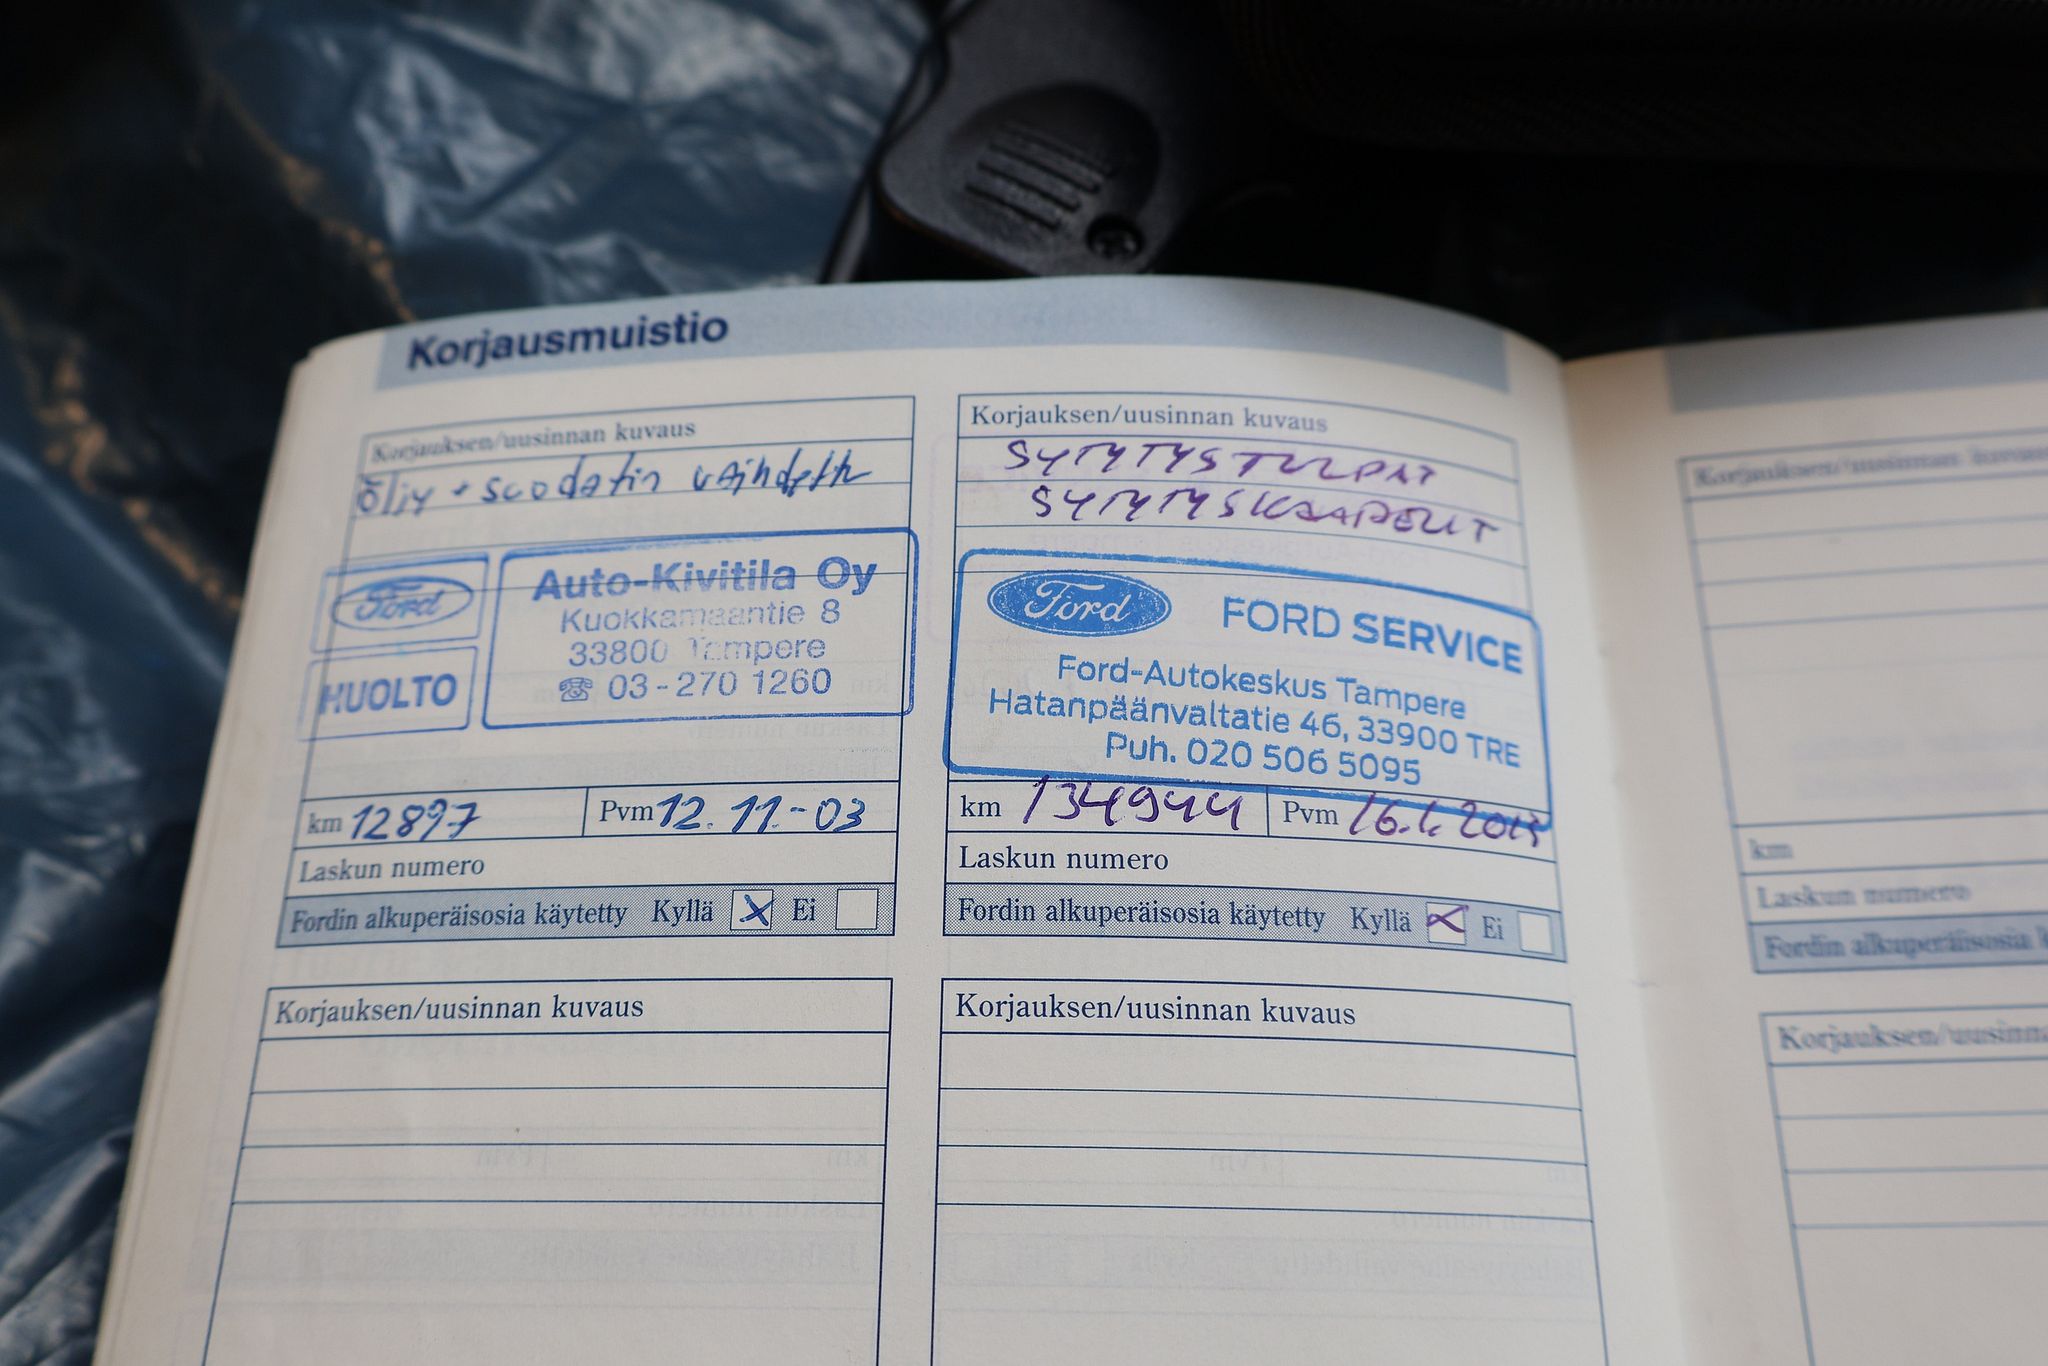 Korjausmuistio
Korjauksen/uusinnan kuvaus
Öljy + suodatin vaihdettu
Ford
HUOLTO
Auto-Kivitila Oy
Kuokkamaantie 8
33800 Tampere
☎ 03-270 1260
km 12897 Pvm 12.11.-03
Laskun numero
Fordin alkuperäisosia käytetty Kyllä Ei
Korjauksen/uusinnan kuvaus
SYTYTYSTULPAT
SYTYTYSKAAPELIT
Ford
FORD SERVICE
Ford-Autokeskus Tampere
Hatanpäänvaltatie 46, 33900 TRE
Puh. 020 506 5095
km 134944 Pvm
Laskun numero
Fordin alkuperäisosia käytetty Kyllä Ei
Korjauksen/uusinnan kuvaus
Korjauksen/uusinnan kuvaus
Korjauksen/uusinnan kuvaus
km
Laskun numero
Fordin alkuperäisosia
Korjauksen/uusinnan